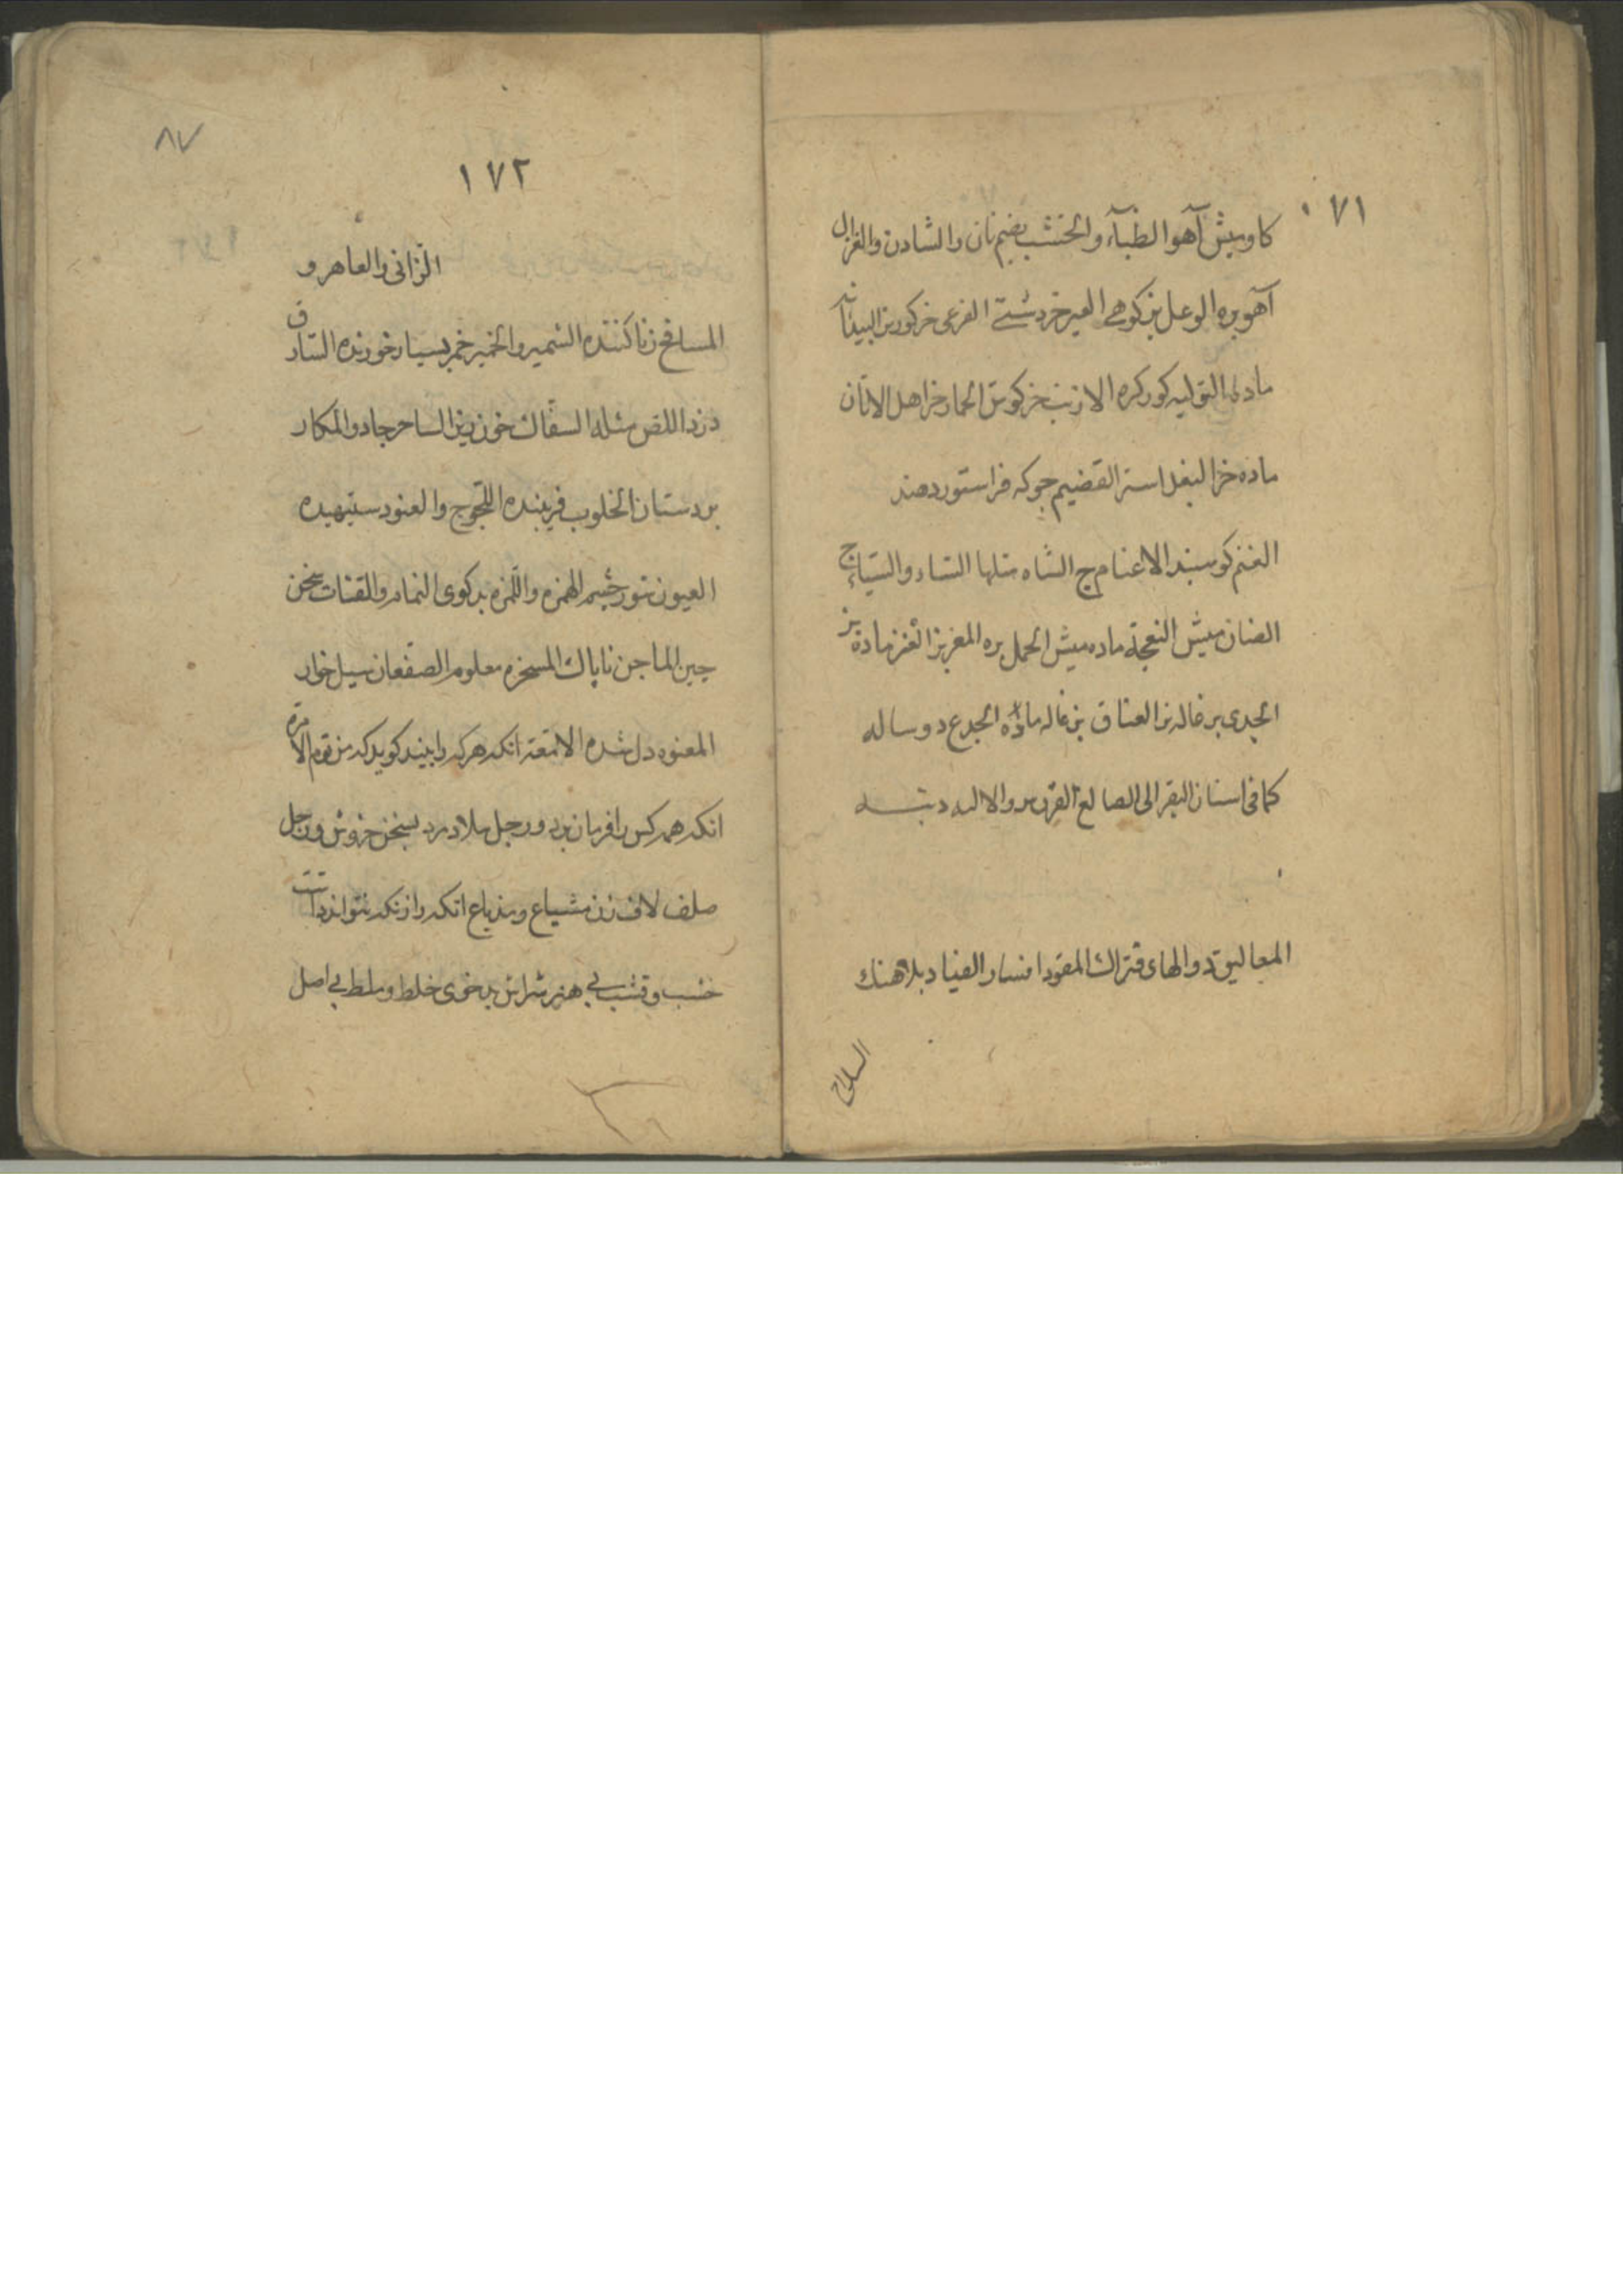 ١٧١
كاوميش آهو الظبآء والخنشب بضم نان والشادن والغزال
آهو بره الوعل بز كوهى العير خر دشتى الفرعى خر كور نر البيدانه
ماده التوليه كور كره الارنب خركوش الحمار خر اهل الاتان
ماده خر البغل استر القضيم جو كه فرا ستور دهند
الغنم كوسبند الاغنام ج الشاه مثلها الشاء والشياه ج
الضان ميش النعجة ماده ميش الحمل بره المعز بز العنز ماده بز
الجدى بزغاله نر العناق بزغاله ماده الجدع دوساله
كما فى اسنان البقر الى الصالغ القرن سرو الاليه دنبه
المعاليق دوالهاى فتراك المقود افسار القياد بلاهنك
السلاح
٨٧
١٧٢
الزانى والعاهر و
المسافح زنا كننده الشمير والخمير خمر بسيار خورنده السارق
دزد اللص مثله السفاك خون ريز الساحر جادو المكار
بر دستان الخلوب فريبنده اللجوج والعنود ستيهيده
العيون شور چشم الهمزه واللمزه بد كوى النمام والقتات سخن
چين الماجن ناپاك المسخره معلوم الصفعان سيل خوار
المعتوه دل شده الامعة انكه هركه را بيند كويد كه من توم الامرة
انكه همه كس را فرمان برد ورجل ملاد مرد بسخن خروش ورجل
صلف لاف زن مشياع ومذياع انكه راز نكه نتواند داشت
خشب وقشب بى هنر شراش بد خوى خلط وملط بى اصل